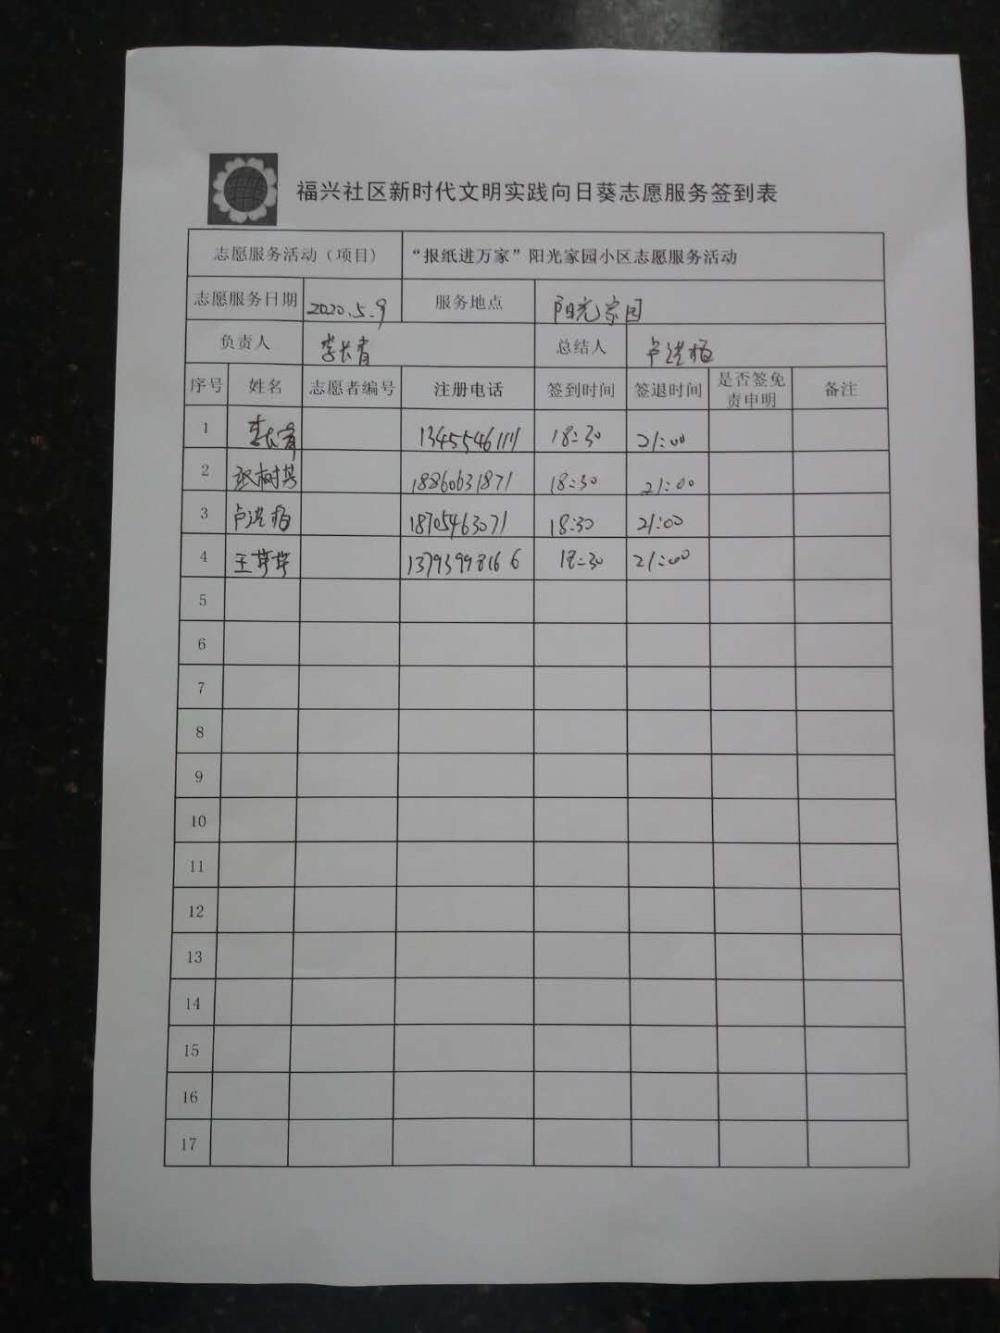 福兴社区新时代文明实践向日葵志愿服务签到表
志愿服务活动（项目） “报纸进万家”阳光家园小区志愿服务活动
志愿服务日期 2020.5.9 服务地点 阳光家园
负责人 李长青 总结人 卢洪梅
序号 姓名 志愿者编号 注册电话 签到时间 签退时间 是否签免责申明 备注
1 李长青 13455461111 18:30 21:00
2 张树其 18860631871 18:30 21:00
3 卢洪梅 18705463071 18:30 21:00
4 王芹芹 13793998166 18:30 21:00
5
6
7
8
9
10
11
12
13
14
15
16
17